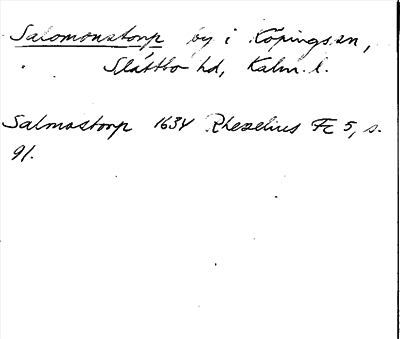 Salomonstorp by i Köpings sn,
Slättbo hd, Kalm. l.
Salmastorp 1634 Rhezelius Fc 5, s.
91.